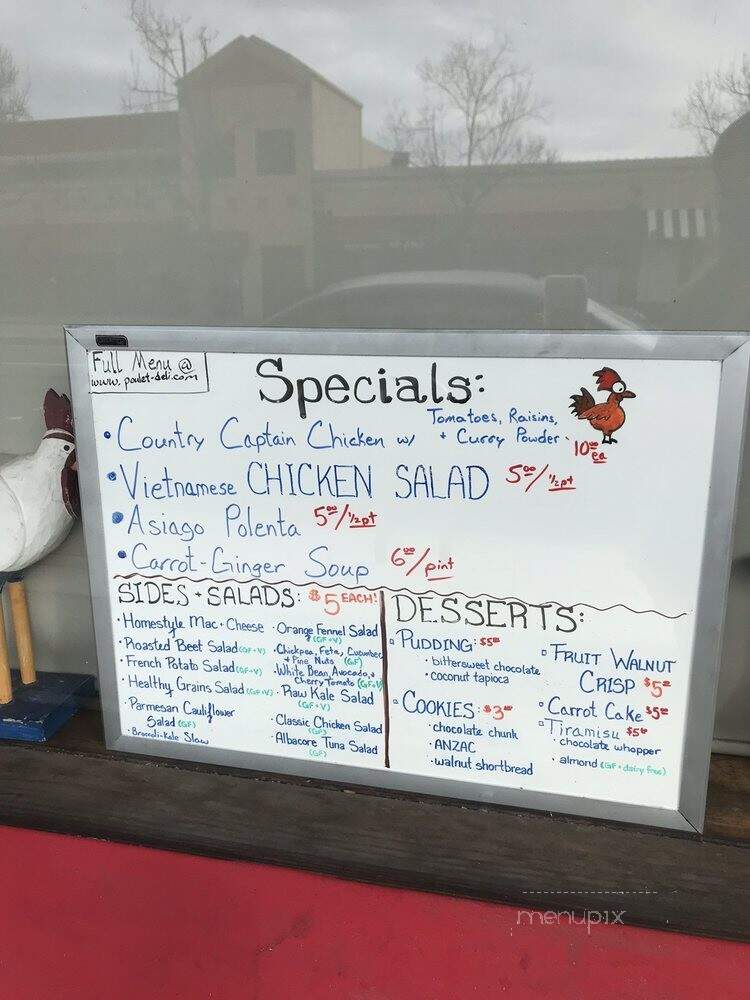 Full Menu @
www.poulet-deli.com
Specials:
• Country Captain Chicken w/ Tomatoes, Raisins,
+ Curry Powder • 10⁰⁰ ea
• Vietnamese CHICKEN SALAD 5⁰⁰/½pt
• Asiago Polenta 5⁰⁰/½pt
• Carrot-Ginger Soup 6⁰⁰/pint
SIDES + SALADS: $5 EACH!
• Homestyle Mac + Cheese
• Roasted Beet Salad (GF+V)
• French Potato Salad (GF+V)
• Healthy Grains Salad (GF+V)
• Parmesan Cauliflower
Salad (GF)
• Broccoli-Kale Slaw
• Orange Fennel Salad
(GF+V)
• Chickpea, Feta, Cucumber
+ Pine Nuts (GF)
• White Bean, Avocado, +
Cherry Tomato (GF+V)
• Raw Kale Salad
(GF+V)
• Classic Chicken Salad
(GF)
• Albacore Tuna Salad
(GF)
DESSERTS:
▫ PUDDING: $5⁰⁰
• bittersweet chocolate
• coconut tapioca
▫ COOKIES: $3⁰⁰
• chocolate chunk
• ANZAC
• walnut shortbread
▫ FRUIT WALNUT
CRISP $5⁰⁰
▫ Carrot Cake $5⁰⁰
▫ Tiramisu $5⁰⁰
• chocolate whopper
• almond (GF + dairy free)
menupix